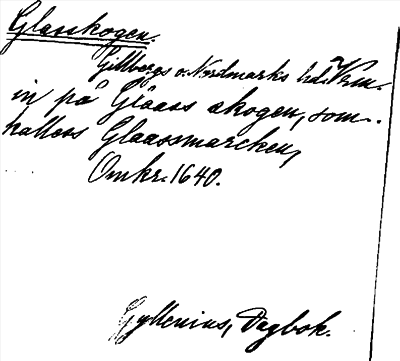 Glasskogen.
Gillbergs o. Nordmarks hd. Vrm.
in på Glaass skogen, som
kalless Glaassmarcken,
Omkr. 1640.
Gyllenius, Dagbok.